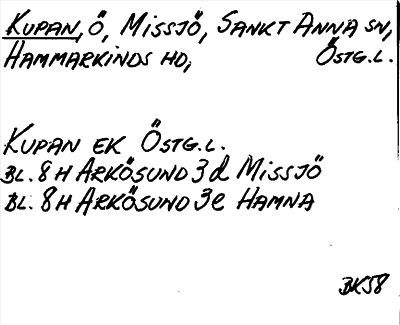 KUPAN, Ö, MISSJÖ, SANKT ANNA SN,
HAMMARKINDS HD, ÖSTG.L.
KUPAN EK ÖSTG.L.
BL. 8 H ARKÖSUND 3 d MISSJÖ
BL. 8 H ARKÖSUND 3e HAMNA
BK58